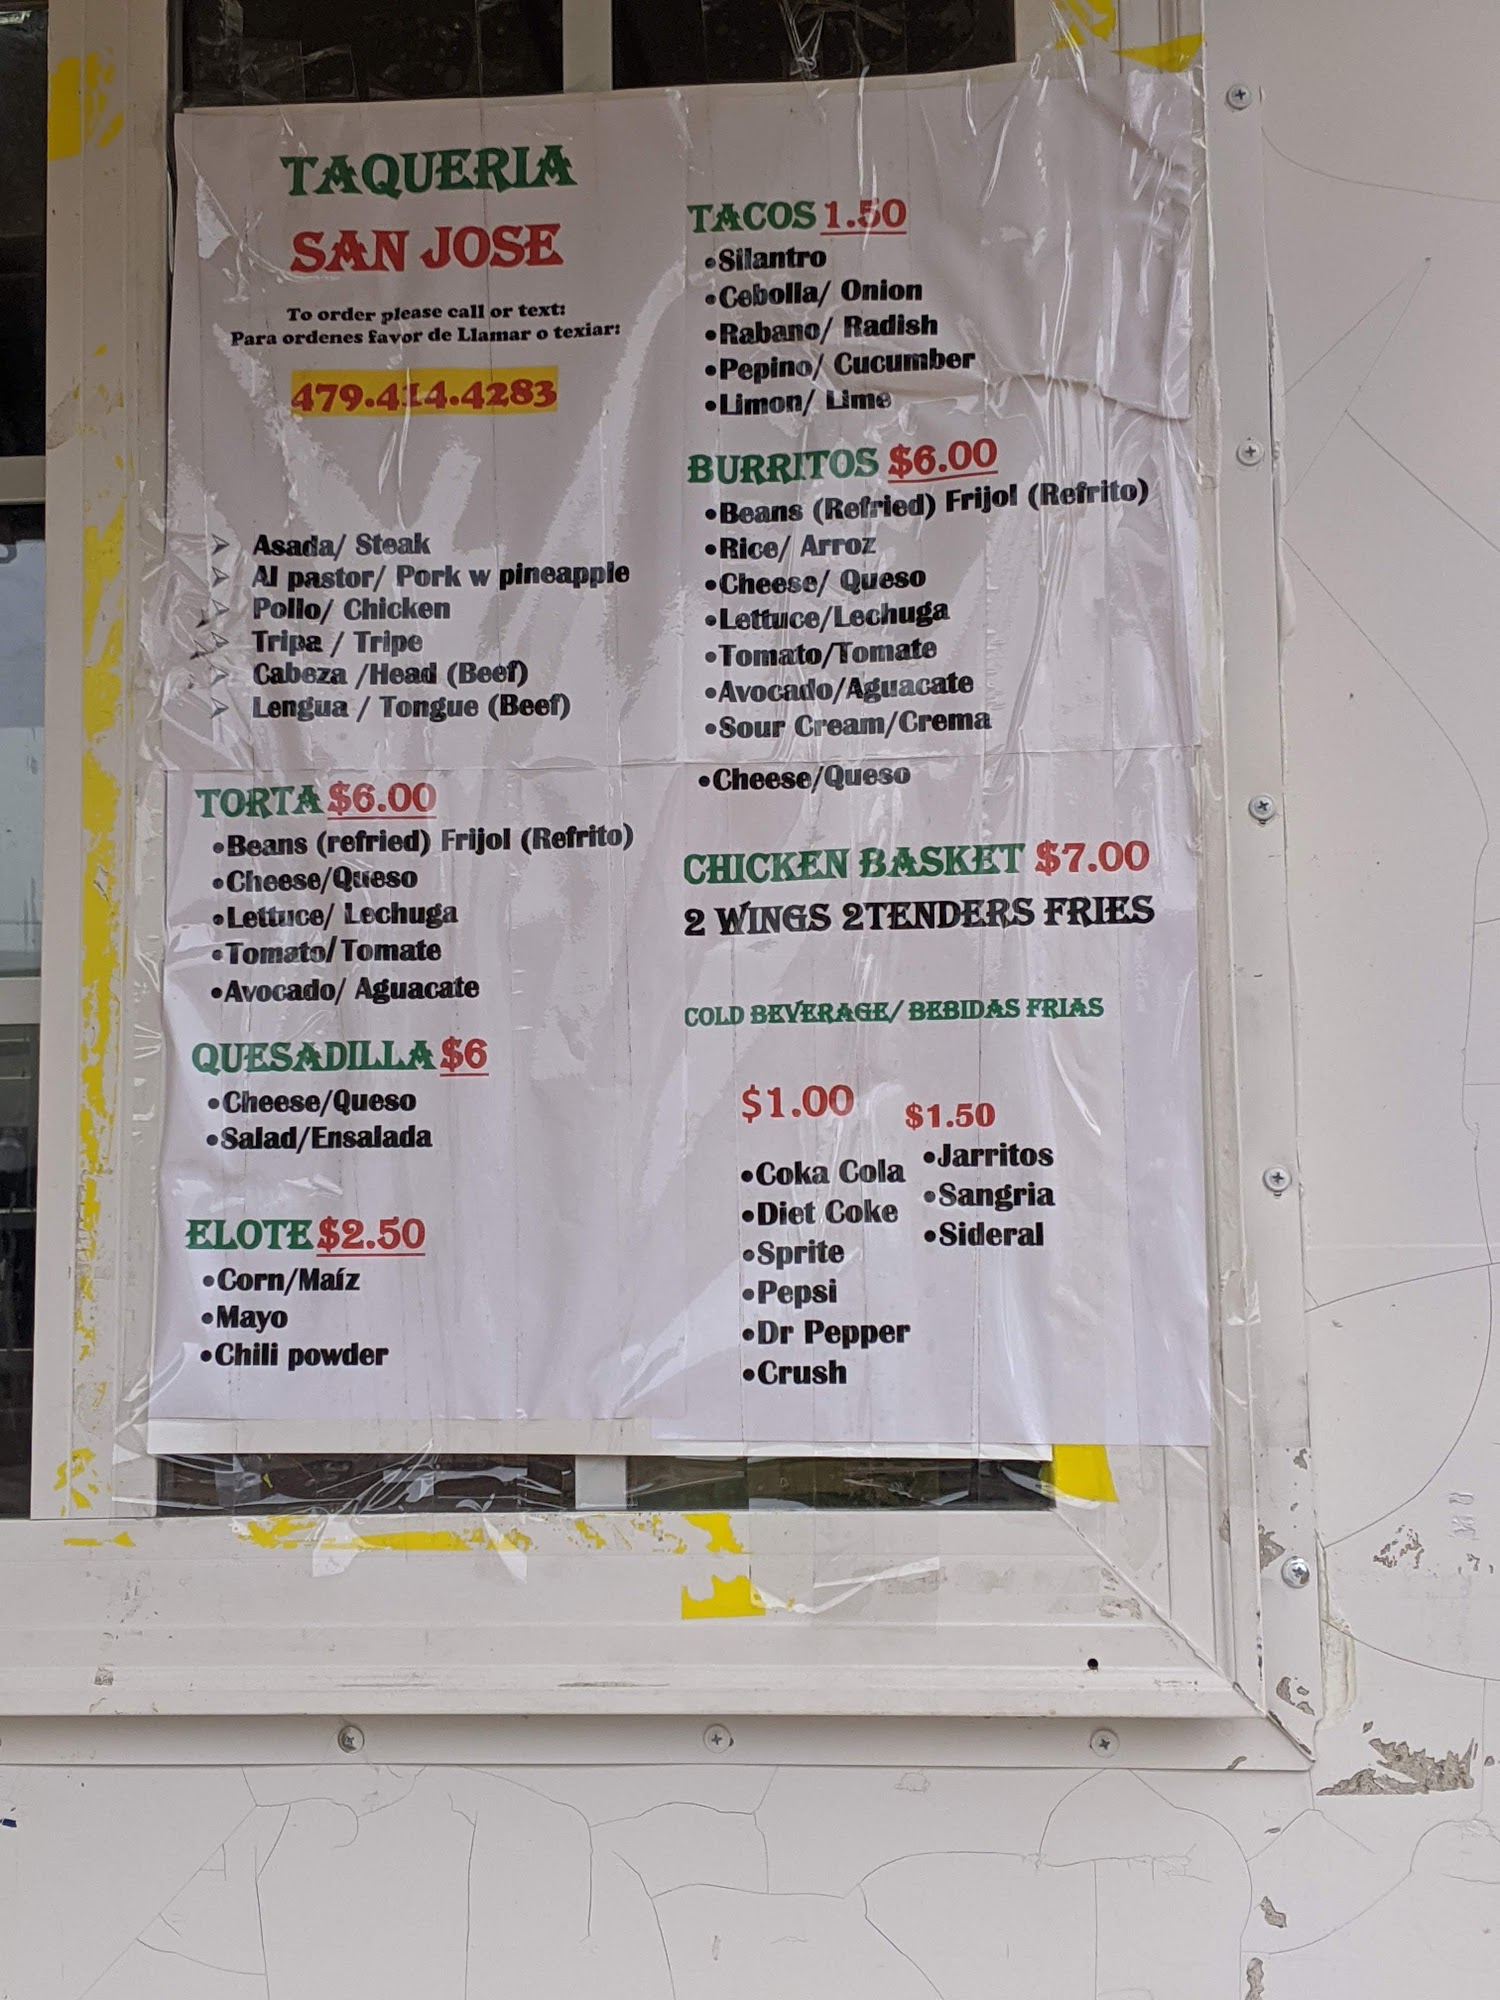 TAQUERIA
SAN JOSE
To order please call or text:
Para ordenes favor de Llamar o texiar:
479.414.4283
Asada/ Steak
Al pastor/ Pork w pineapple
Pollo/ Chicken
Tripa / Tripe
Cabeza /Head (Beef)
Lengua / Tongue (Beef)
TORTA $6.00
•Beans (refried) Frijol (Refrito)
•Cheese/Queso
•Lettuce/ Lechuga
•Tomato/Tomate
•Avocado/ Aguacate
QUESADILLA $6
•Cheese/Queso
•Salad/Ensalada
ELOTE $2.50
•Corn/Maíz
•Mayo
•Chili powder
TACOS 1.50
•Silantro
•Cebolla/ Onion
•Rabano/ Radish
•Pepino/ Cucumber
•Limon/ Lime
BURRITOS $6.00
•Beans (Refried) Frijol (Refrito)
•Rice/ Arroz
•Cheese/ Queso
•Lettuce/Lechuga
•Tomato/Tomate
•Avocado/Aguacate
•Sour Cream/Crema
•Cheese/Queso
CHICKEN BASKET $7.00
2 WINGS 2TENDERS FRIES
COLD BEVERAGE/ BEBIDAS FRIAS
$1.00
•Coka Cola
•Diet Coke
•Sprite
•Pepsi
•Dr Pepper
•Crush
$1.50
•Jarritos
•Sangria
•Sideral